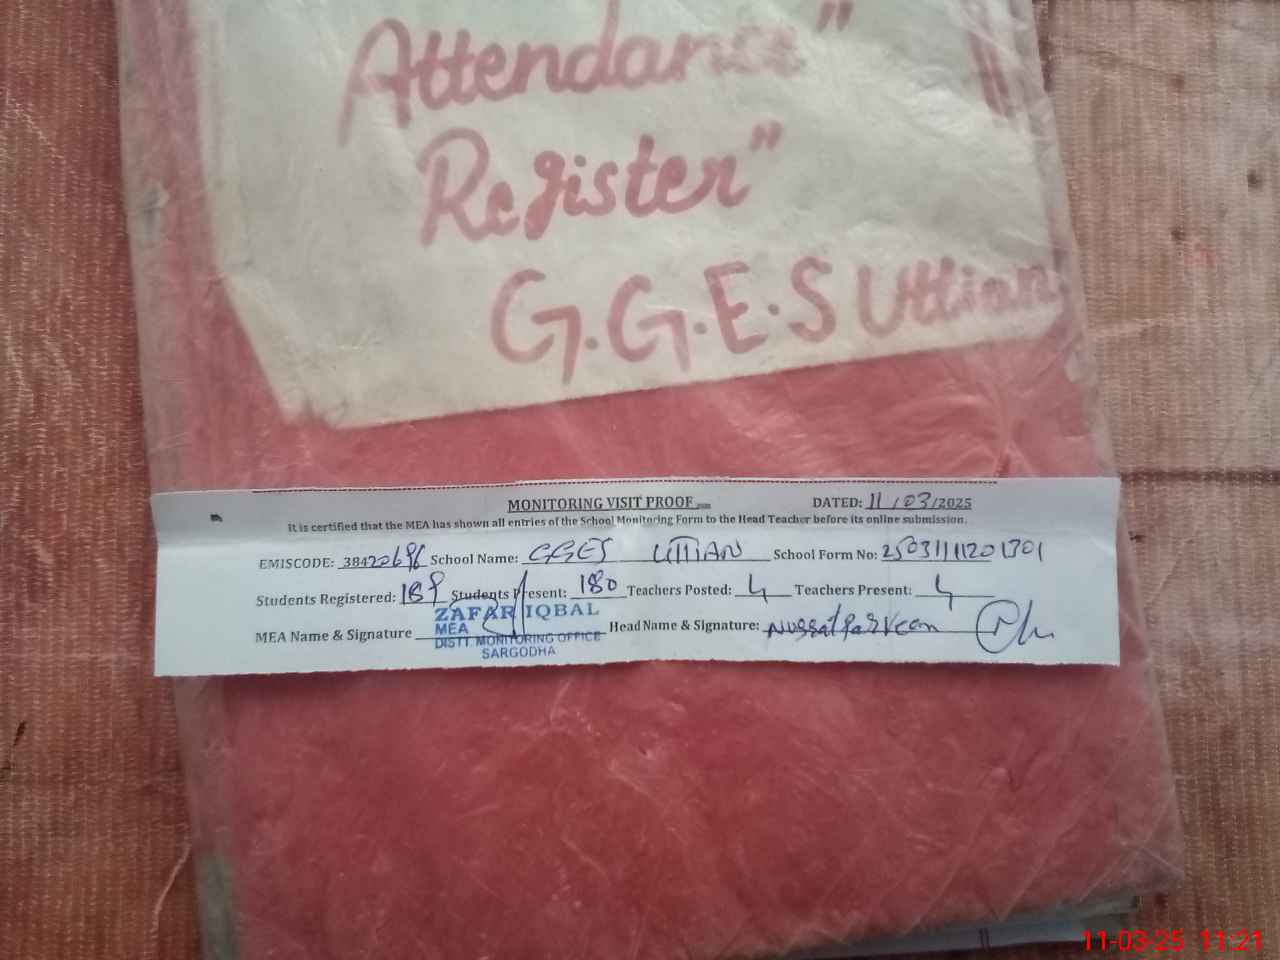 Attendance"
Register"
G.G.E.S Uttian
MONITORING VISIT PROOF
DATED: 11/03/2025
It is certified that the MEA has shown all entries of the School Monitoring Form to the Head Teacher before its online submission.
EMISCODE: 38420696 School Name: GGES UTTIAN School Form No:
Students Registered: 189 Students Present: 180 Teachers Posted: 4 Teachers Present: 4
ZAFAR IQBAL
MEA Name & Signature MEA Head Name & Signature: Nussat Parveen
DISTT. MONITORING OFFICE
SARGODHA
11-03-25 11:21